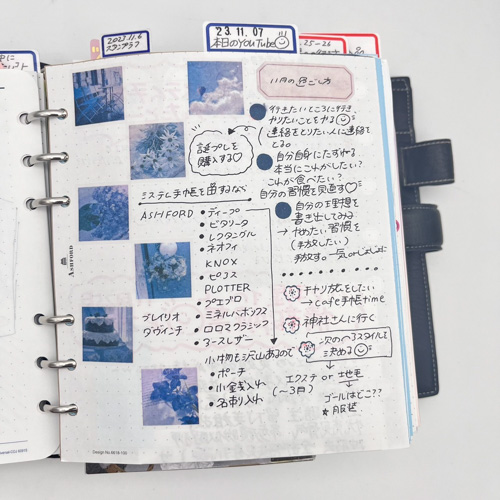 2023.11.6
スタンプラフ
23.11.07
本日のYouTube
25-26
11月の過ごし方
行きたいところに行き、
やりたいことをやる
連絡をとりたい人に連絡を
とる。
誕プレを
購入する♡
自分自身にたずねる
本当にこれがしたい?
これが食べたい?
自分の習慣を見直す♡
自分の理想を
書き出してみる
→ やめたい習慣を
(手放したい)
手放す。一気 or じょじょに
システム手帳を出すなら
ASHFORD
・ディープ
・ピタリータ
・レクタングル
・ネオフィ
KNOX
・ピコス
PLOTTER
・プエブロ
ブレイリオ
・ミネルバボックス
ダヴィンチ
・ロロマクラシック
・アースレザー
小物も沢山あるので
・ポーチ
・小銭入れ
・名刺入れ
キャリ放をしたい
→ cafe手帳time
神社さんに行く
次のヘアスタイルを
決める
エクステ or 地毛
(〜3月)
ゴールはどこ??
★服装
ASHFORD
Design No.6618-100